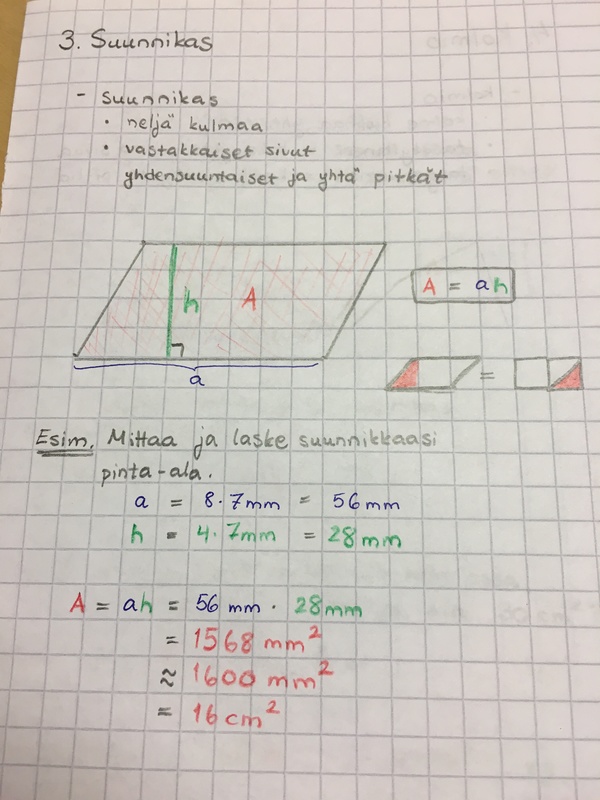 3. Suunnikas
- suunnikas
• neljä kulmaa
• vastakkaiset sivut
yhdensuuntaiset ja yhtä pitkät
h A
A = ah
a
=
Esim. Mittaa ja laske suunnikkaasi
pinta-ala.
a = 8·7mm = 56mm
h = 4·7mm = 28mm
A = ah = 56 mm · 28mm
= 1568 mm²
≈ 1600 mm²
= 16 cm²